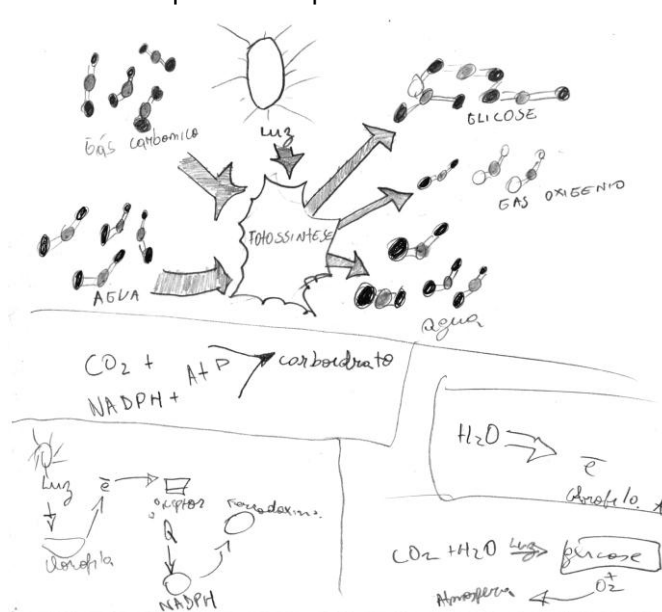 Gás carbonico
Luz
GLICOSE
GAS OXIGENIO
FOTOSSINTESE
AGUA
agua
CO₂ +
ATP
carboidrato
NADPH +
H₂O
e̅
clorofila
Luz
e̅
clorofila
Q
NADPH
CO₂ + H₂O Luz glicose
Atmosfera
O₂
+